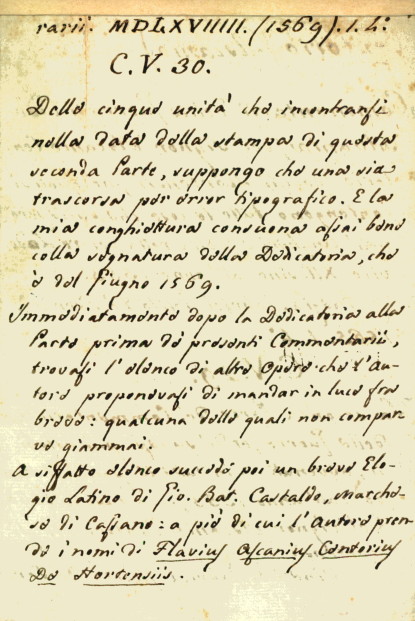 rarii. MDLXVIIIII. (1569). I. 4:
C. V. 30.
Delle cinque unità che incontransi
nella data della stampa di questa
seconda Parte, suppongo che una sia
trascorsa per error tipografico. E la
mia conghiettura consuona assai bene
colla segnatura della Dedicatoria, che
è del Giugno 1569.
Immediatamente dopo la Dedicatoria alla
Parte prima de' presenti Commentarii,
trovasi l'elenco di altre Opere che l'Au-
tore proponevasi di mandar in luce fra
breve: qualcuna delle quali non compar-
ve giammai.
A siffatto elenco succede poi un breve Elo-
gio Latino di Gio. Bat. Castaldo, Marche-
se di Cassano: a piè di cui l'Autore pren-
de i nomi di Flavius Ascanius Centorius
De Hortensiis.